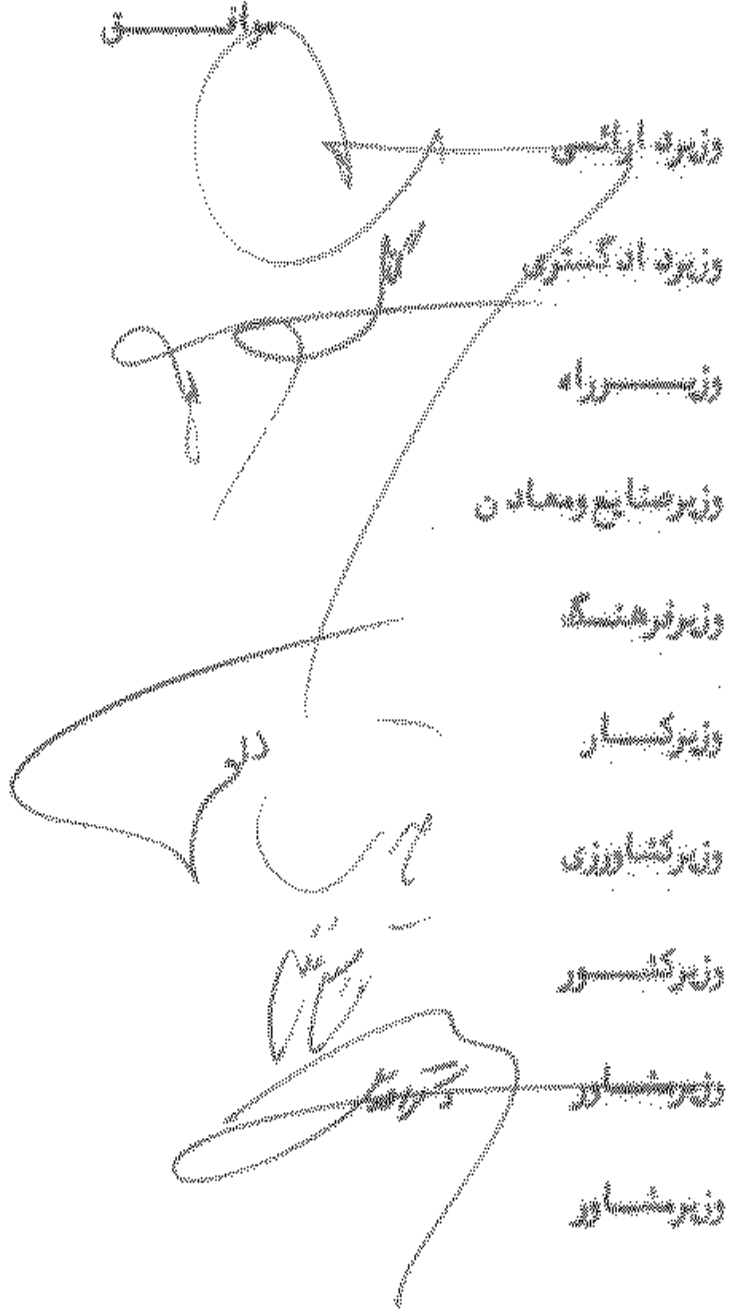 موافـــــــق
وزیرد ارائـــی
وزیرد ادگستری
وزیـــــرراه
وزیرصنایع ومعاد ن
وزیرفرهنـــگ
وزیرکـــار
وزیرکشاورزی
وزیرکشـــور
وزیرمشـــاور
وزیرمشـــاور